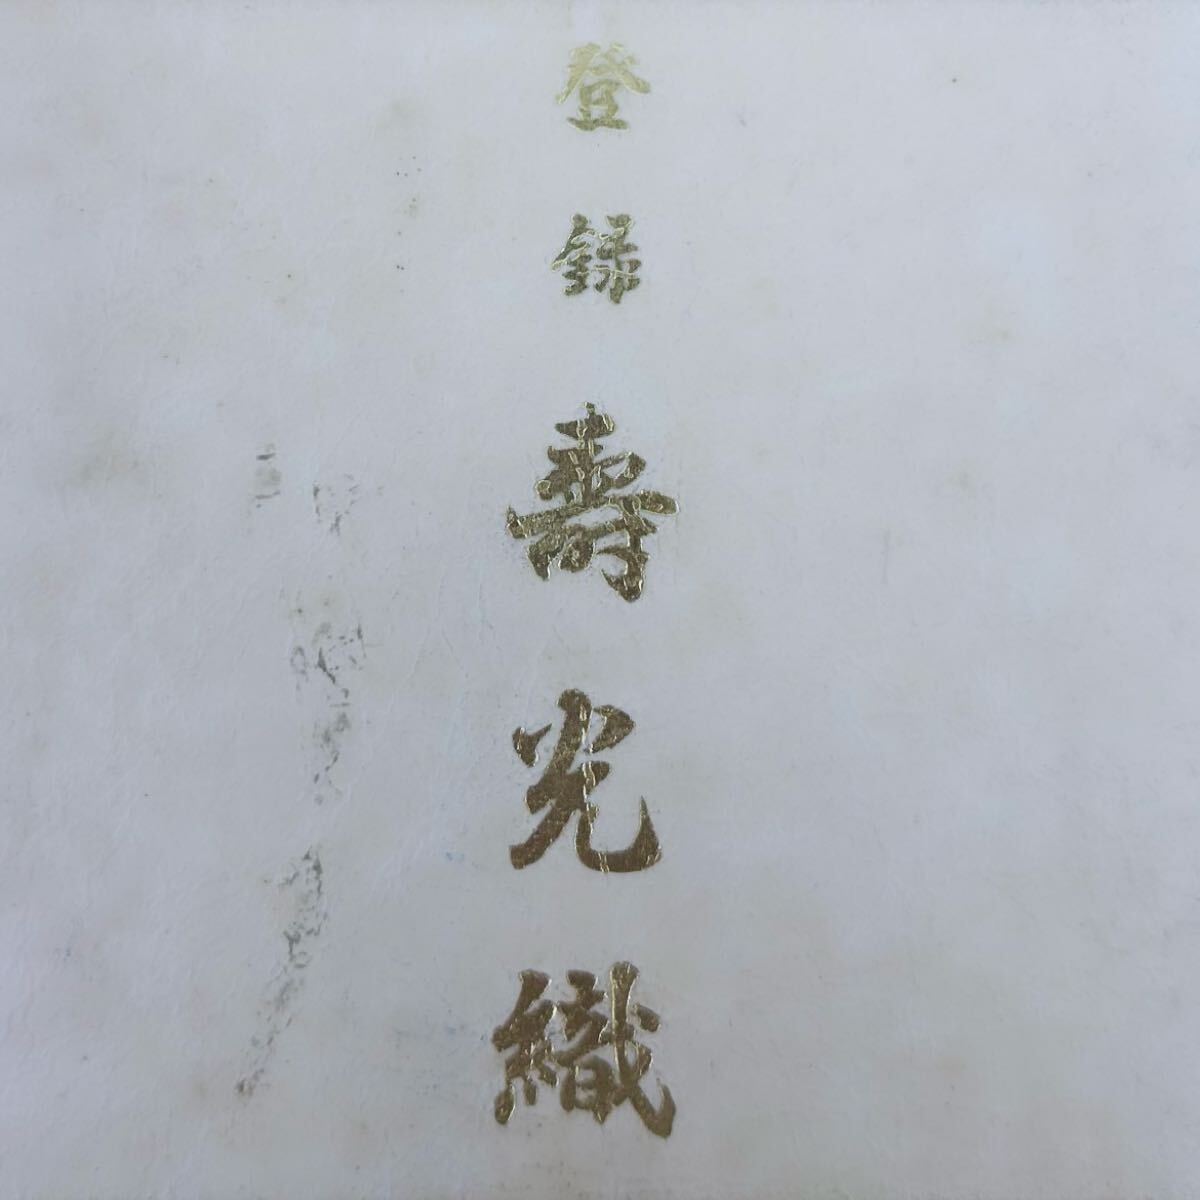 登録壽光織